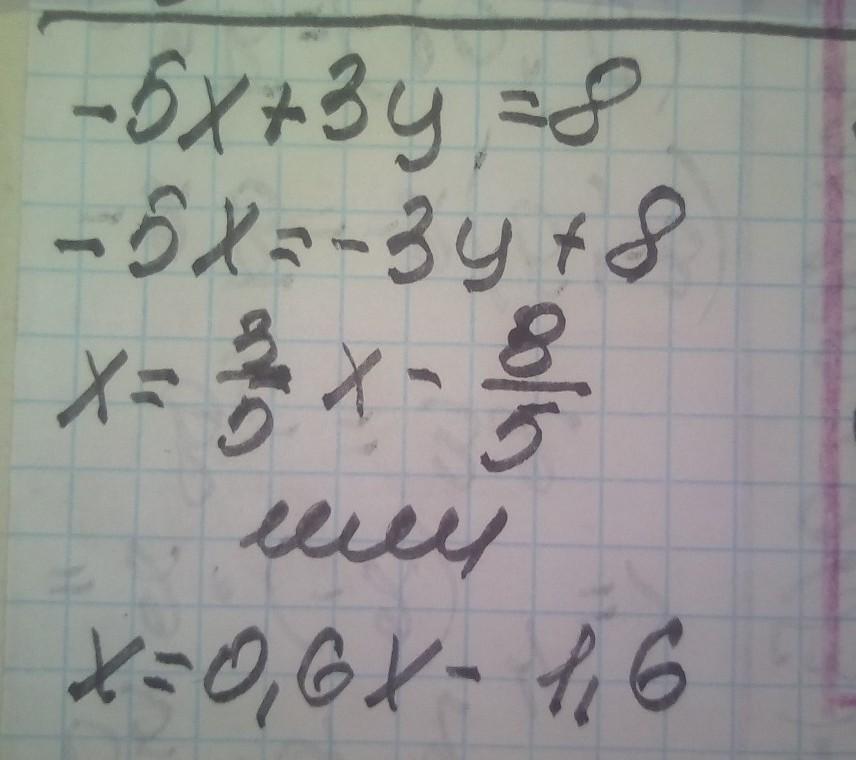 -5x+3y=8
-5x=-3y+8
x=3/5 x-8/5
или
x=0,6x-1,6